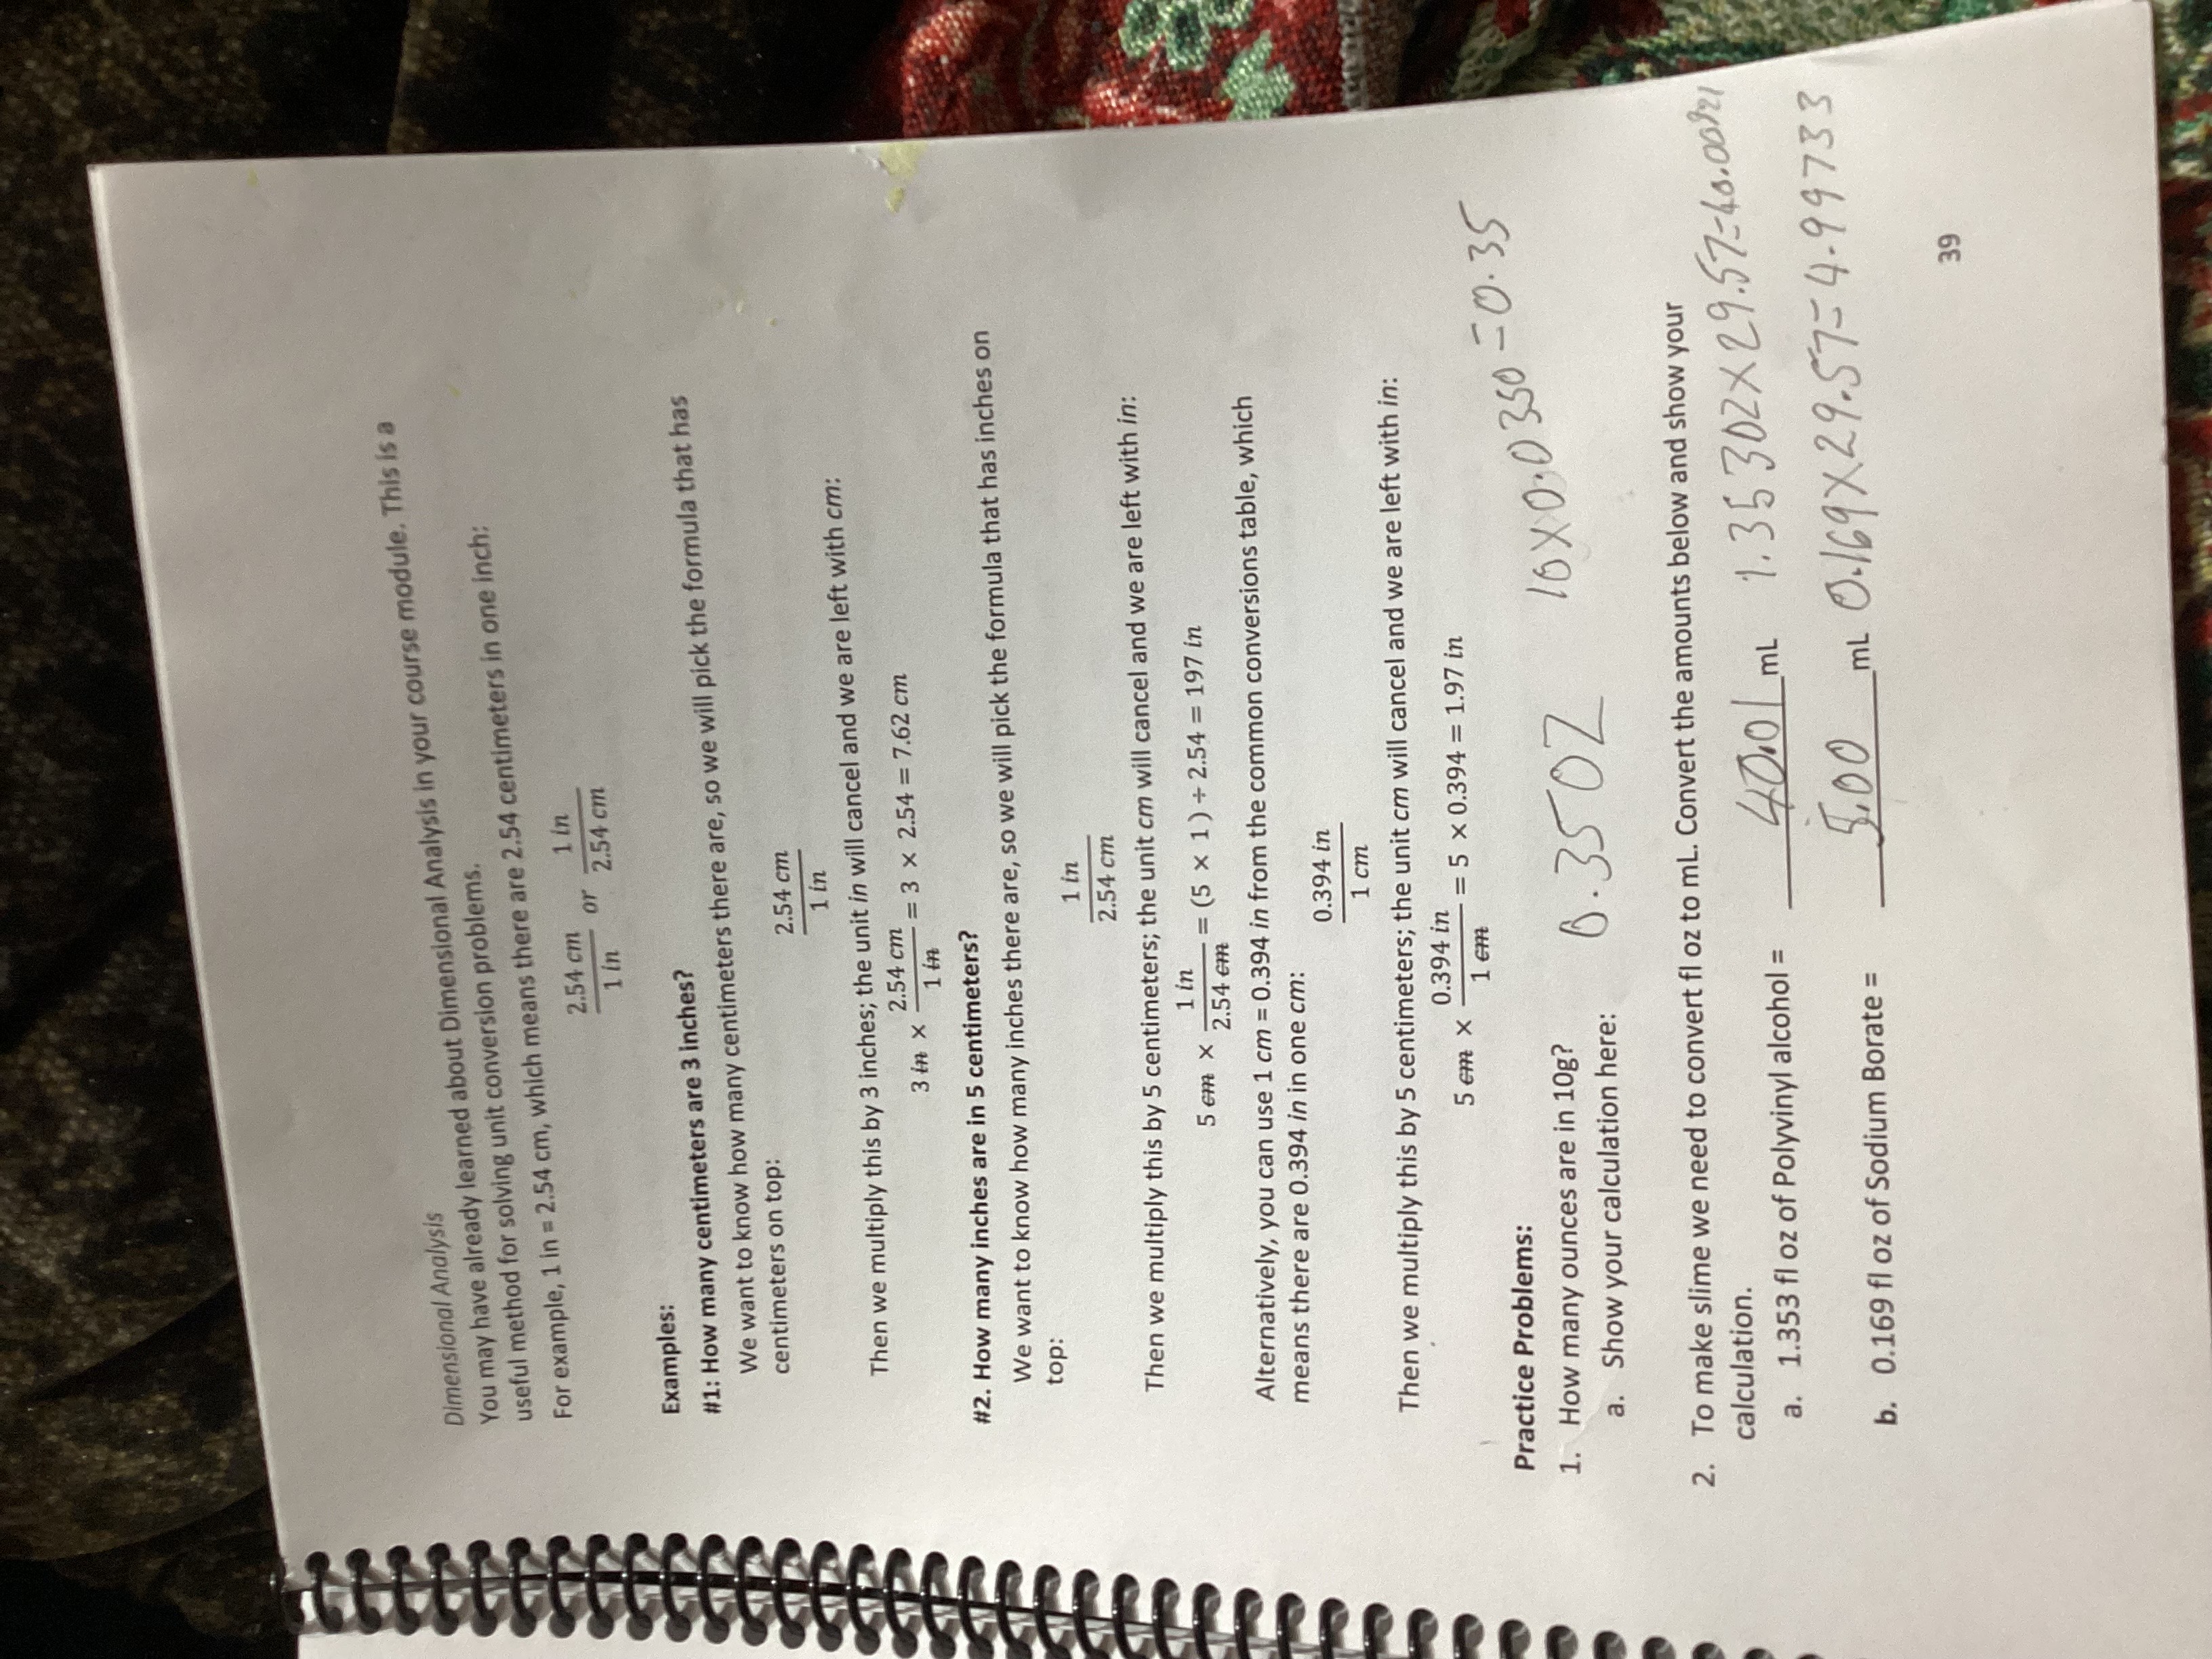 Dimensional Analysis
You may have already learned about Dimensional Analysis in your course module. This is a
useful method for solving unit conversion problems.
For example, 1 in = 2.54 cm, which means there are 2.54 centimeters in one inch:
2.54 cm / 1 in or 1 in / 2.54 cm
Examples:
#1: How many centimeters are 3 inches?
We want to know how many centimeters there are, so we will pick the formula that has
centimeters on top:
2.54 cm / 1 in
Then we multiply this by 3 inches; the unit in will cancel and we are left with cm:
3 in × 2.54 cm / 1 in = 3 × 2.54 = 7.62 cm
#2. How many inches are in 5 centimeters?
We want to know how many inches there are, so we will pick the formula that has inches on
top:
1 in / 2.54 cm
Then we multiply this by 5 centimeters; the unit cm will cancel and we are left with in:
5 cm × 1 in / 2.54 cm = (5 × 1) ÷ 2.54 = 197 in
Alternatively, you can use 1 cm = 0.394 in from the common conversions table, which
means there are 0.394 in in one cm:
0.394 in / 1 cm
Then we multiply this by 5 centimeters; the unit cm will cancel and we are left with in:
5 cm × 0.394 in / 1 cm = 5 × 0.394 = 1.97 in
Practice Problems:
1. How many ounces are in 10g?
a. Show your calculation here: 0.35OZ 10X0.0350=0.35
2. To make slime we need to convert fl oz to mL. Convert the amounts below and show your
calculation.
a. 1.353 fl oz of Polyvinyl alcohol = 40.01 mL 1.35302X29.57=
b. 0.169 fl oz of Sodium Borate = 5.00 mL 0.169X29.57=4.99733
39